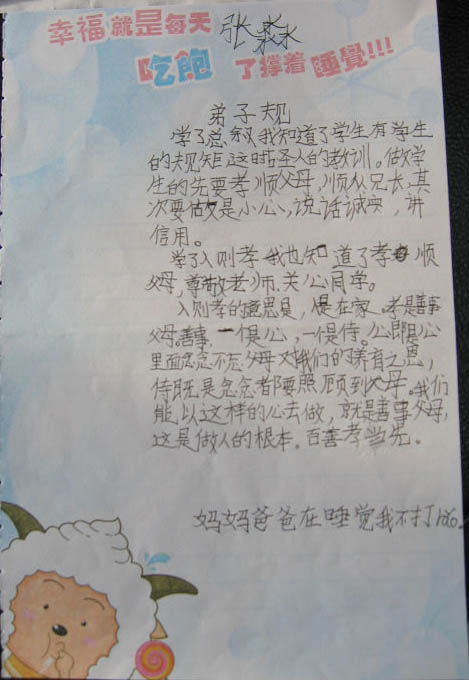 幸福就是每天
吃飽了撑着睡覺!!!
弟子规
学了总叙我知道了学生有学生
的规矩这时圣人的教训。做学
生的先要孝顺父母,顺从兄长,其
次要做是小心,说话诚实,讲
信用。
学了入则孝我也知道了孝顺
父母,尊敬老师,关心同学。
入则孝的意思是,入是在家。孝是善事
父母。善事,一个是心,一个是侍。心即是心
里面念念不忘父母对我们的养育之恩,
侍既是念念都要照顾到父母。我们
能以这样的心去做,就是善事父母,
这是做人的根本。百善孝当先。
妈妈爸爸在睡觉我不打